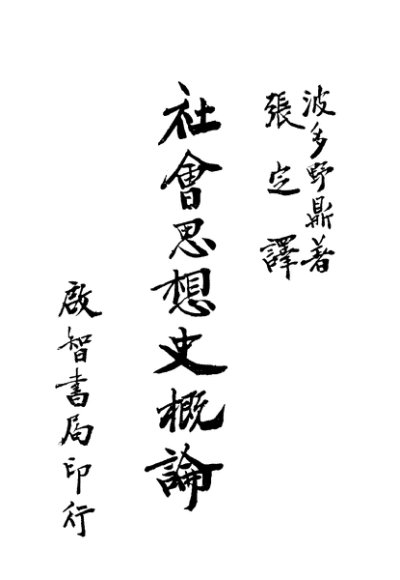 波多野鼎著
張定譯
社會思想史概論
啟智書局印行